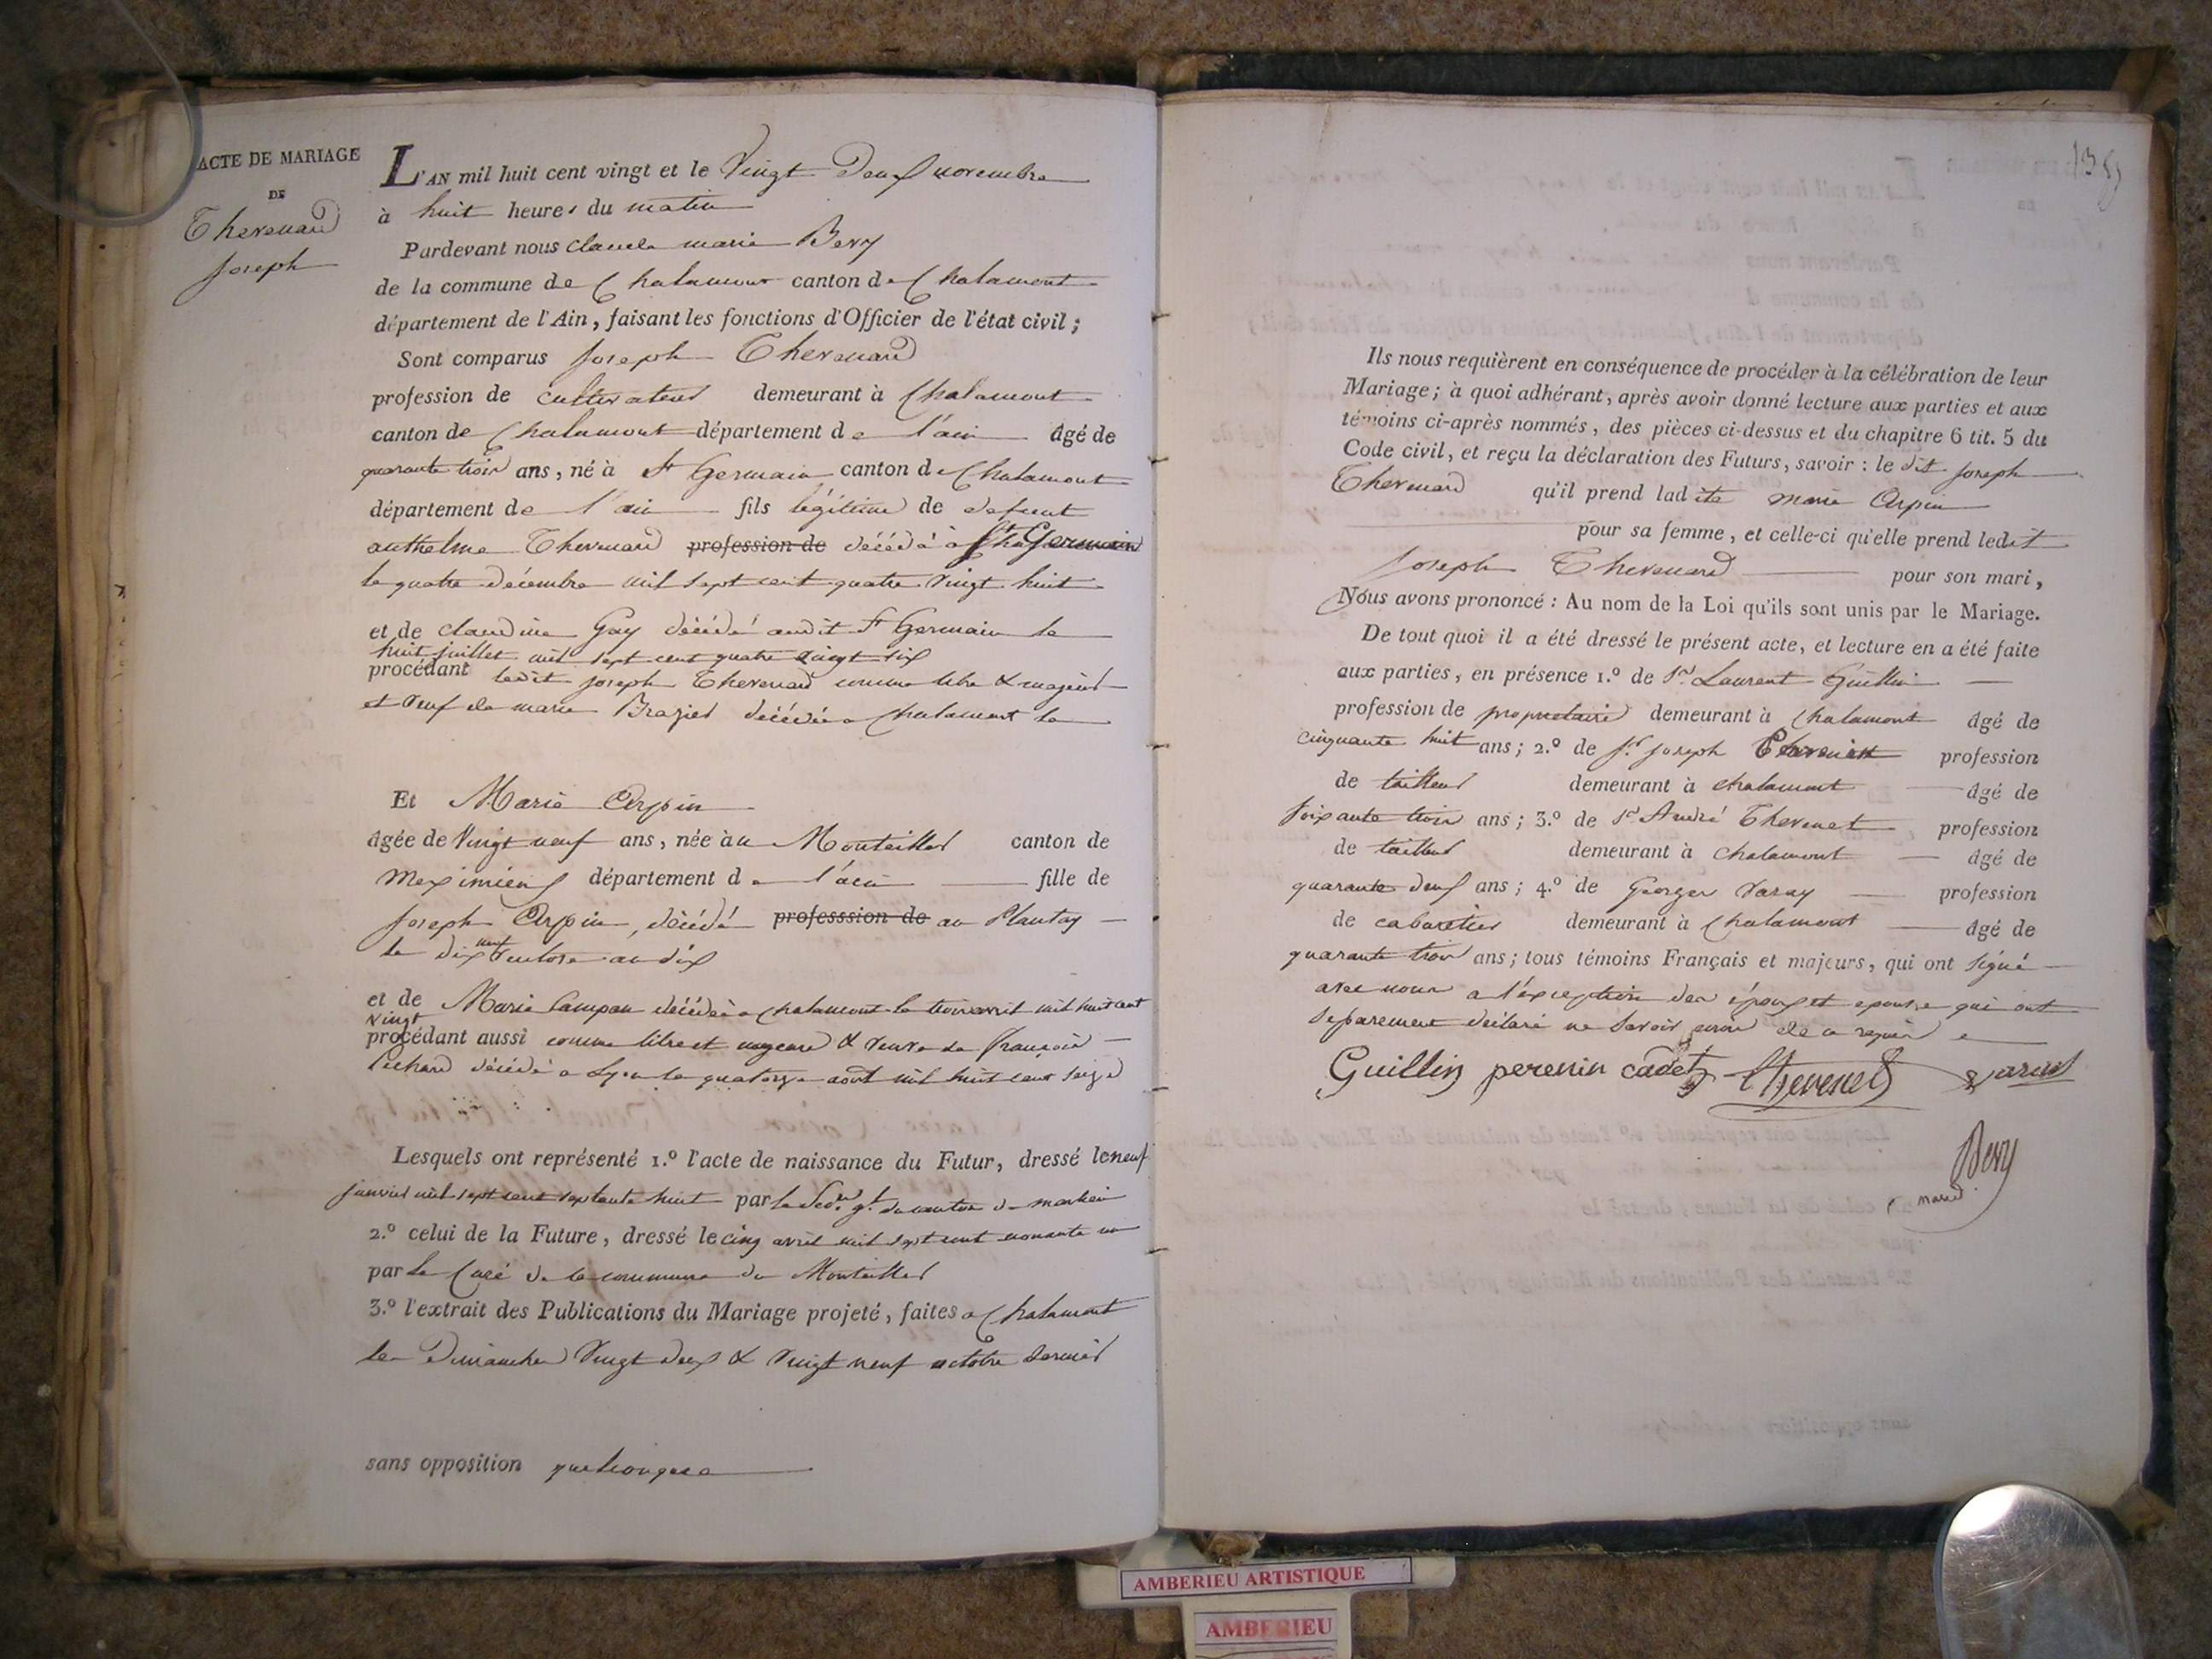 ACTE DE MARIAGE
DE
Thevenard
Joseph
L'AN mil huit cent vingt et le Vingt Deux novembre
à huit heures du matin
Pardevant nous Claude marie Bevy
de la commune de Chalamont canton de Chalamont
département de l'Ain, faisant les fonctions d'Officier de l'état civil;
Sont comparus Joseph Thevenard
profession de cultivateur demeurant à Chalamont
canton de Chalamont département de l'ain âgé de
quarante trois ans, né à St Germain canton de Chalamont
département de l'ain fils légitime de defunt
anthelme Thevenard profession de décédé à St Germain
le quatre décembre mil sept cent quatre vingt huit
et de claudine Gay décédé audit St Germain le
huit juillet mil sept cent quatre vingt six
procédant ledit Joseph Thevenard comme libre & majeur
et veuf de marie Brazier décédée a Chalamont le
Et Marie Arpin
âgée de Vingt neuf ans, née au Montellier canton de
Meximieux département de l'ain fille de
Joseph Arpin, décédé professsion de au Plantay
le dix neuf ventose an dix
et de Marie Campan décédée a Chalamont le trois avril mil huit cent
vingt
procédant aussi comme libre et majeure & veuve de françois
Pichard décédé a Lyon le quatorze août mil huit cent seize
Lesquels ont représenté 1.º l'acte de naissance du Futur, dressé le neuf
janvier mil sept cent septante huit par le
2.º celui de la Future, dressé le cinq avril mil sept cent nonante un
par le Curé de la commune du Montellier
3.º l'extrait des Publications du Mariage projeté, faites a Chalamont
les Dimanches Vingt deux & Vingt neuf octobre dernier
sans opposition quelconque
Ils nous requièrent en conséquence de procéder à la célébration de leur
Mariage; à quoi adhérant, après avoir donné lecture aux parties et aux
témoins ci-après nommés, des pièces ci-dessus et du chapitre 6 tit. 5 du
Code civil, et reçu la déclaration des Futurs, savoir : le dit Joseph
Thevenard qu'il prend ladite marie Arpin
pour sa femme, et celle-ci qu'elle prend ledit
Joseph Thevenard pour son mari,
Nous avons prononcé : Au nom de la Loi qu'ils sont unis par le Mariage.
De tout quoi il a été dressé le présent acte, et lecture en a été faite
aux parties, en présence 1.º de Sr Laurent Guillin
profession de propriétaire demeurant à Chalamont âgé de
cinquante huit ans; 2.º de Sr Joseph profession
de tailleur demeurant à chalamont âgé de
soixante trois ans; 3.º de Sr André Thevenet profession
de tailleur demeurant à chalamont âgé de
quarante deux ans; 4.º de Georges Varay profession
de cabaretier demeurant à Chalamont âgé de
quarante trois ans; tous témoins Français et majeurs, qui ont signé
avec nous a l'exception des époux et epouse qui ont
separement déclaré ne savoir signer de ce requis
Guillin perenin cadet Thevenet
Bevy
AMBERIEU ARTISTIQUE
AMBERIEU